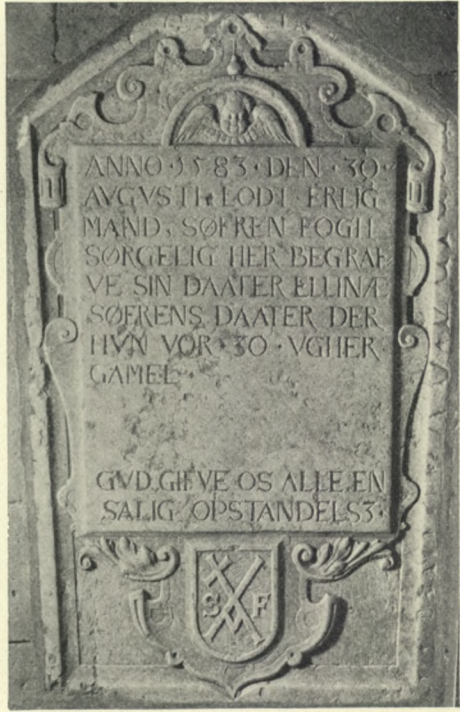 ANNO · 1583 · DEN · 30 ·
AVGVSTI · LODT · ERLIG
MAND · SØFREN FOGIT
SØRGELIG HER BEGRAF
VE SIN DAATER ELLINÆ
SØFRENS DAATER DER
HVN VOR · 30 · VGHER
GAMEL ·
GVD GIFVE OS ALLE EN
SALIG OPSTANDELS3 ·
S F